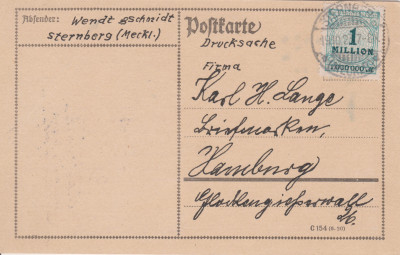 Absender: Wendt gschmidt
Sternberg (Meckl.)
Postkarte
Drucksache
1
MILLION
Firma
Karl H. Lange
Briefmarken,
Hamburg
Glockengießerwall
26.
C 154